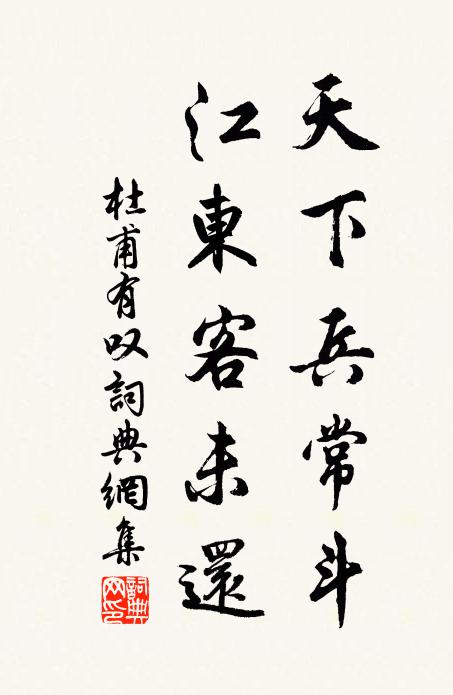 天下兵常斗
江東客未還
杜甫有叹詞典網集
詞典网印